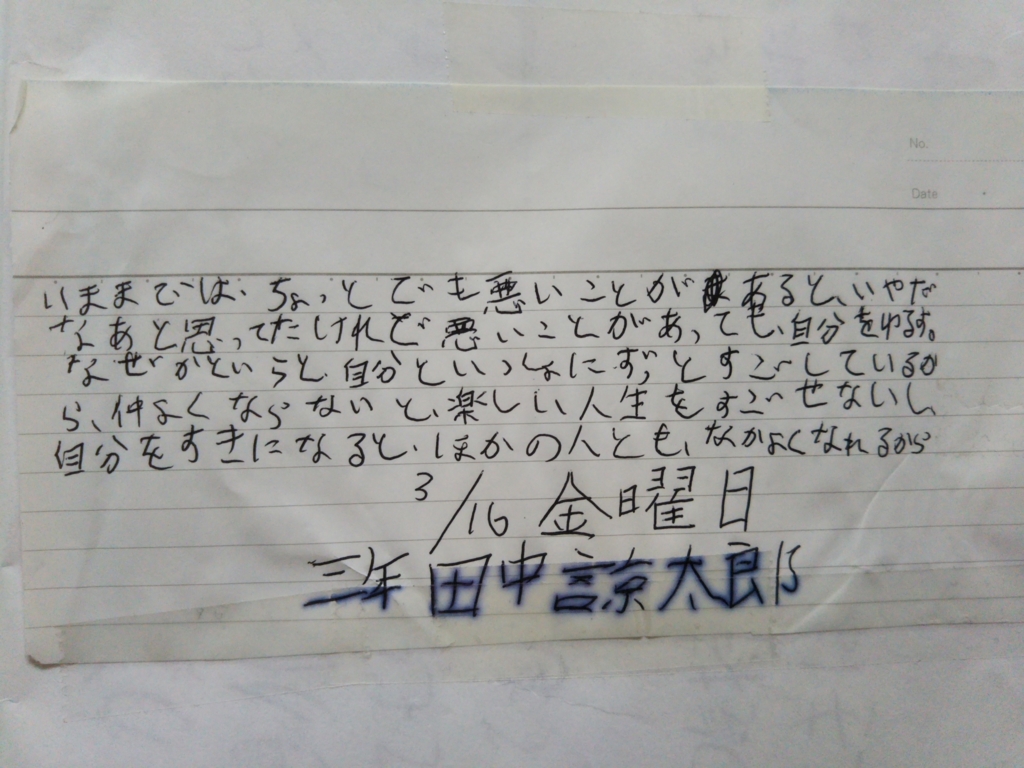 No.
Date
いままでは、ちょっとでも悪いことがあると、いやだ
なあと思ってたけれど悪いことがあっても、自分をゆるす。
なぜかというと、自分といっしょにずっとすごしているか
ら、仲よくならないと、楽しい人生をすごせないし、
自分をすきになると、ほかの人とも、なかよくなれるから
3/16 金曜日
三年 田中諒太郎